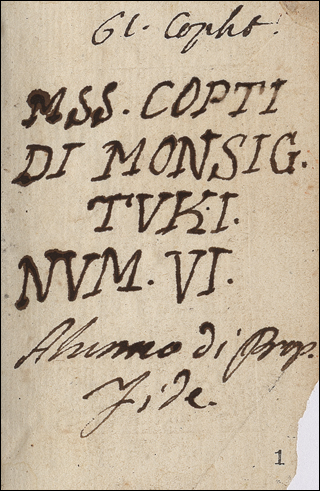 Gl. Copht.
MSS. COPTI
DI MONSIG.
TVKI.
NVM. VI.
Alunno di Prop.
Fide.
1